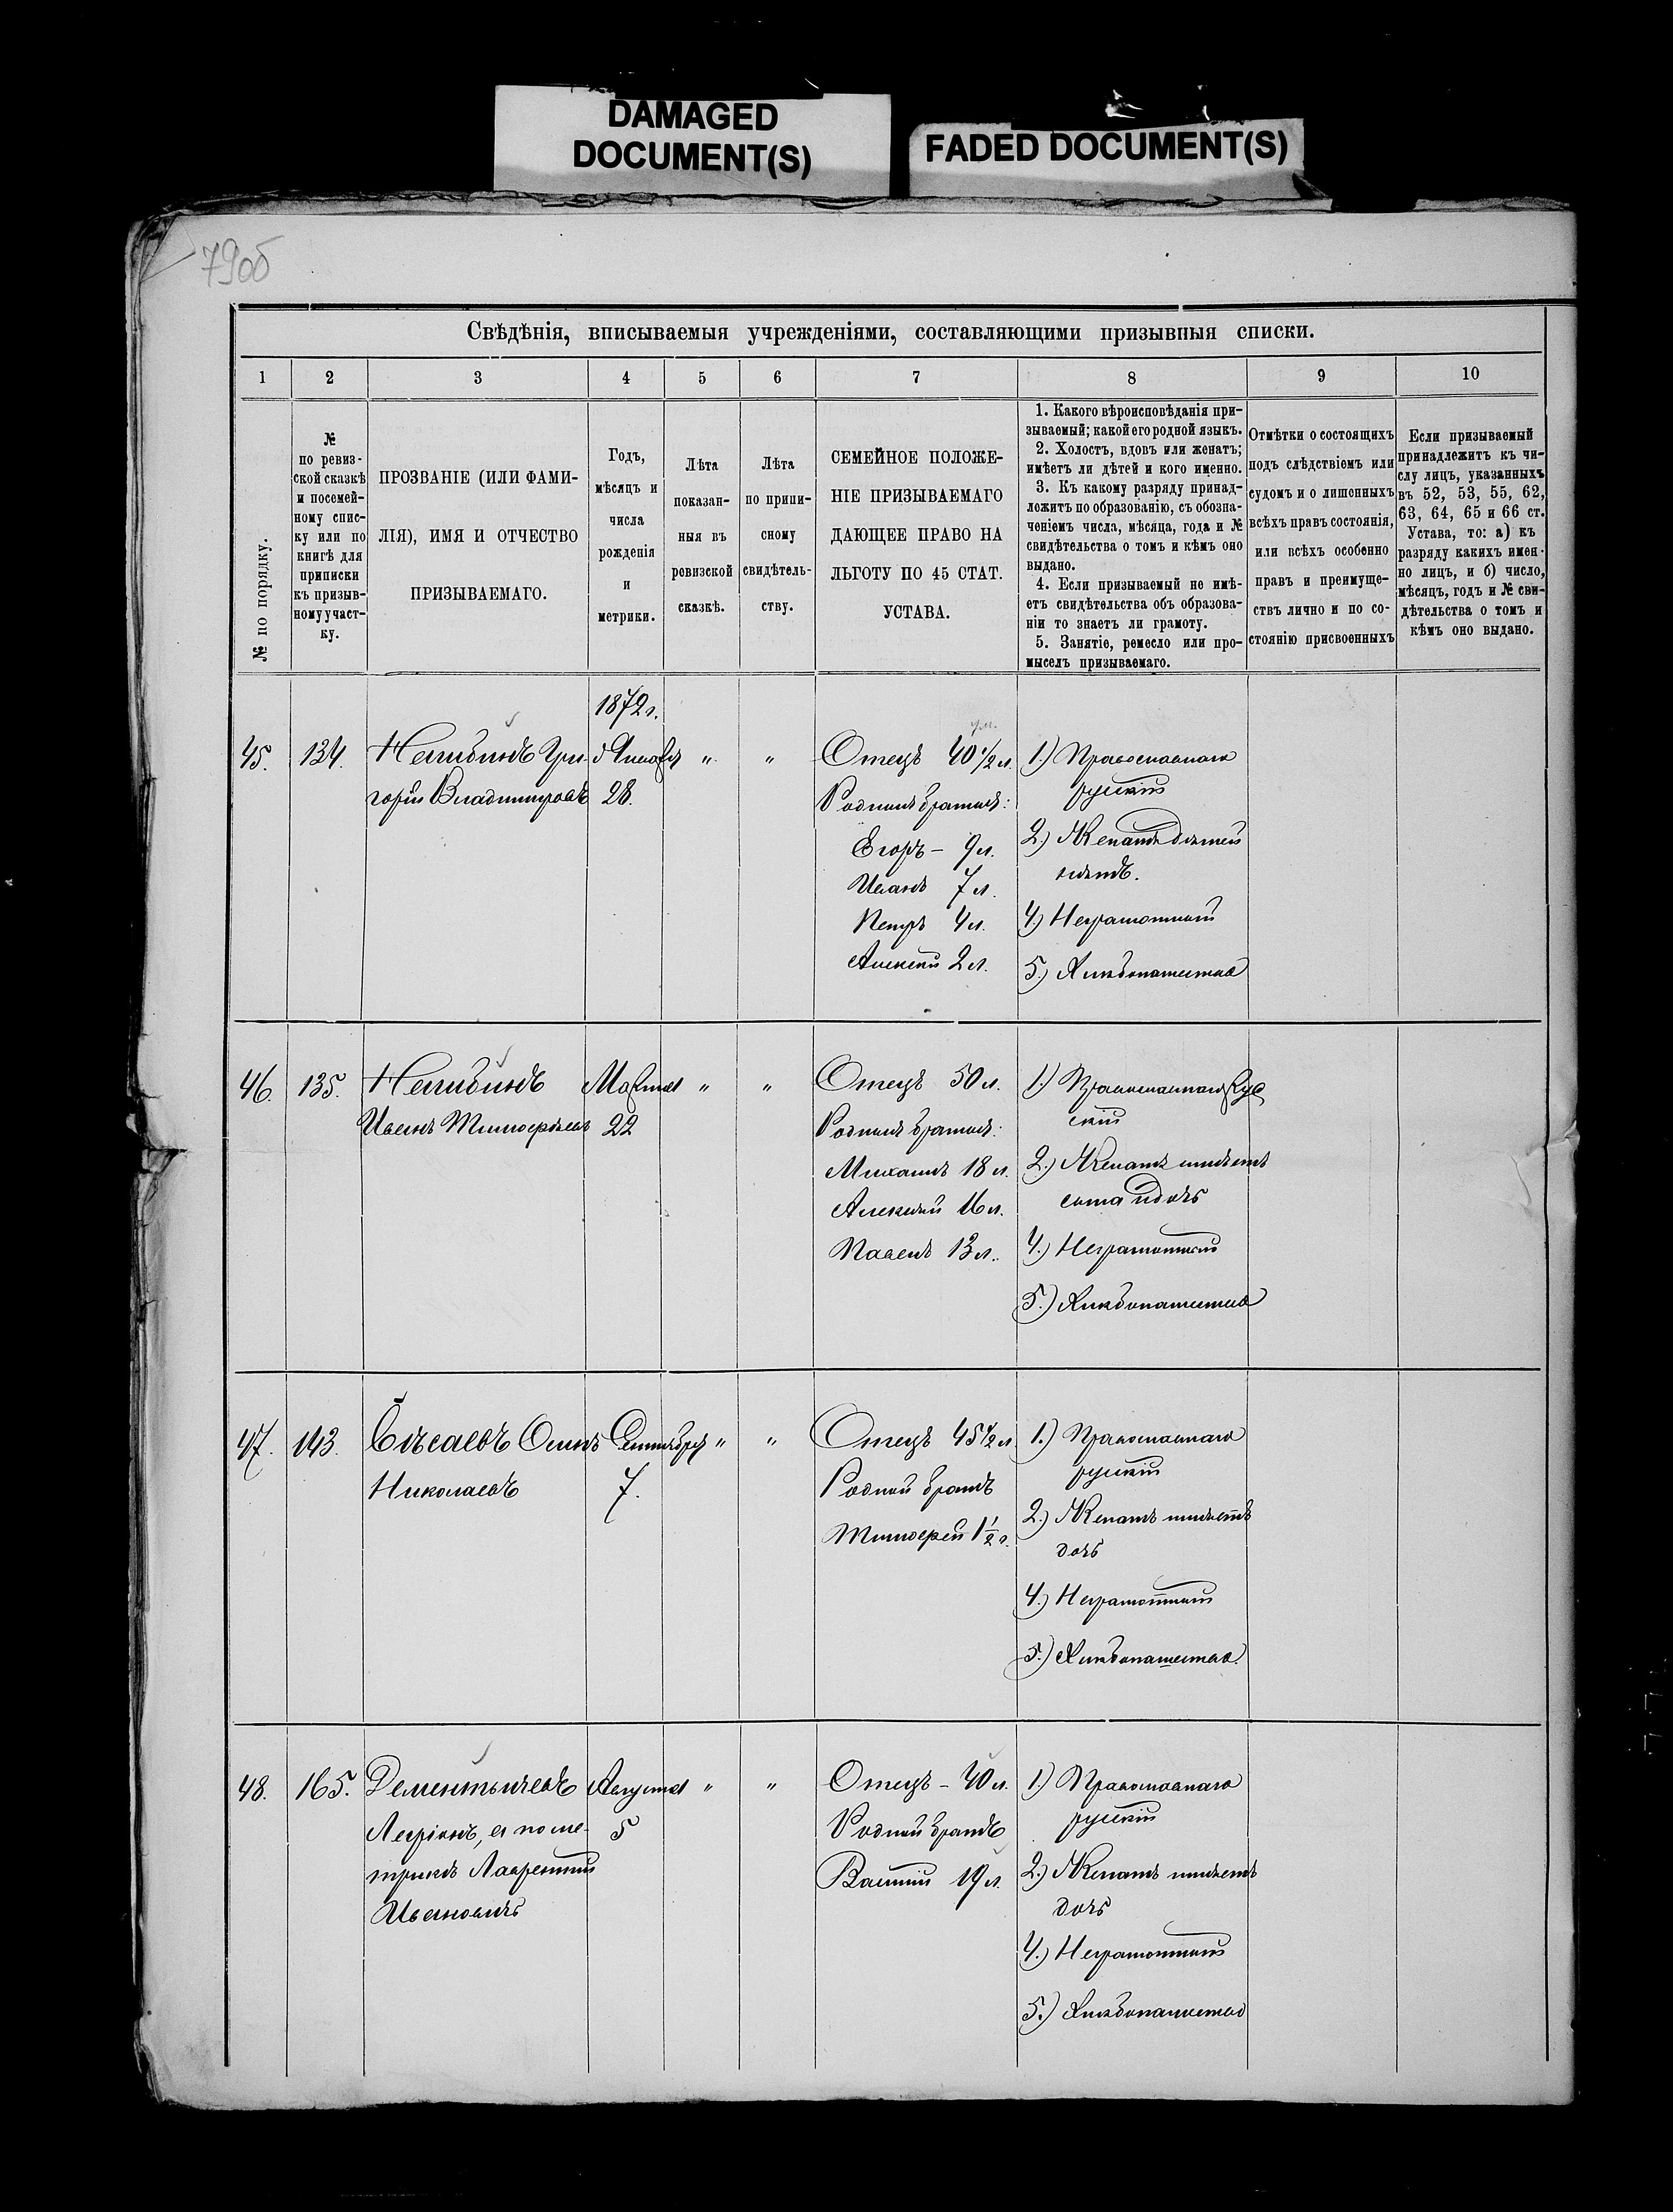 DAMAGED
DOCUMENT(S)
FADED DOCUMENT(S)
79об
Свѣдѣнія, вписываемыя учрежденіями, составляющими призывныя списки.
1 2 3 4 5 6 7 8 9 10
№ по порядку.
№
по ревиз-
ской сказкѣ
и посемей-
ному спис-
ку или по
книгѣ для
приписки
къ призыв-
ному участ-
ку.
ПРОЗВАНІЕ (ИЛИ ФАМИ-
ЛІЯ), ИМЯ И ОТЧЕСТВО
ПРИЗЫВАЕМАГО.
Годъ,
мѣсяцъ и
числа
рожденія
и
метрики.
Лѣта
показан-
ныя въ
ревизской
сказкѣ.
Лѣта
по припи-
сному
свидѣтель-
ству.
СЕМЕЙНОЕ ПОЛОЖЕ-
НІЕ ПРИЗЫВАЕМАГО
ДАЮЩЕЕ ПРАВО НА
ЛЬГОТУ ПО 45 СТАТ.
УСТАВА.
1. Какого вѣроисповѣданія при-
зываемый; какой его родной языкъ.
2. Холостъ, вдовъ или женатъ;
имѣетъ ли дѣтей и кого именно.
3. Къ какому разряду принад-
лежитъ по образованію, съ обозна-
ченіемъ числа, мѣсяца, года и №
свидѣтельства о томъ и кѣмъ оно
выдано.
4. Если призываемый не имѣ-
етъ свидѣтельства объ образова-
ніи то знаетъ ли грамоту.
5. Занятіе, ремесло или про-
мыселъ призываемаго.
Отмѣтки о состоящихъ
подъ слѣдствіемъ или
судомъ и о лишенныхъ
всѣхъ правъ состоянія,
или всѣхъ особенно
правъ и преимуще-
ствъ лично и по со-
стоянію присвоенныхъ
Если призываемый
принадлежитъ къ чи-
слу лицъ, указанныхъ
въ 52, 53, 55, 62,
63, 64, 65 и 66 ст.
Устава, то: а) къ
разряду какихъ имен-
но лицъ, и б) число,
мѣсяцъ, годъ и № сви-
дѣтельства о томъ и
кѣмъ оно выдано.
1872 г.
45. 134. Григорій Владимировъ
28.
" "
Отецъ 40 1/2 л.
Родныя братья:
Егоръ - 9 л.
Иванъ 7 л.
Петръ 4 л.
Алексѣй 2 л.
1.) Православнаго
русскій
2.) Женатъ дѣтей
нѣтъ.
4.) Неграмотный
5.) Хлѣбопашество
46. 135.
Иванъ Тимофѣевъ
Марта
22
" "
Отецъ 50 л.
Родныя братья:
Михаилъ 18 л.
Алексѣй 16 л.
Павелъ 13 л.
1.) Православнаго Рус
скій
2.) Женатъ имѣетъ
сына и дочь
4.) Неграмотный
5.) Хлѣбопашество
47. 143. Осипъ
Николаевъ
Сентября
7.
" "
Отецъ 45 1/2 л.
Родной братъ
Тимофей 1 1/2 г.
1.) Православнаго
русскій
2.) Женатъ имѣетъ
дочь
4.) Неграмотный
5.) Хлѣбопашество.
48. 165. Дементьичевъ
а по ме-
трикѣ Лаврентій
Ивановичъ
Августа
5
" "
Отецъ - 40 л.
Родной братъ
Василій 19 л.
1.) Православнаго
русскій
2.) Женатъ имѣетъ
дочь
4.) Неграмотный
5.) Хлѣбопашество